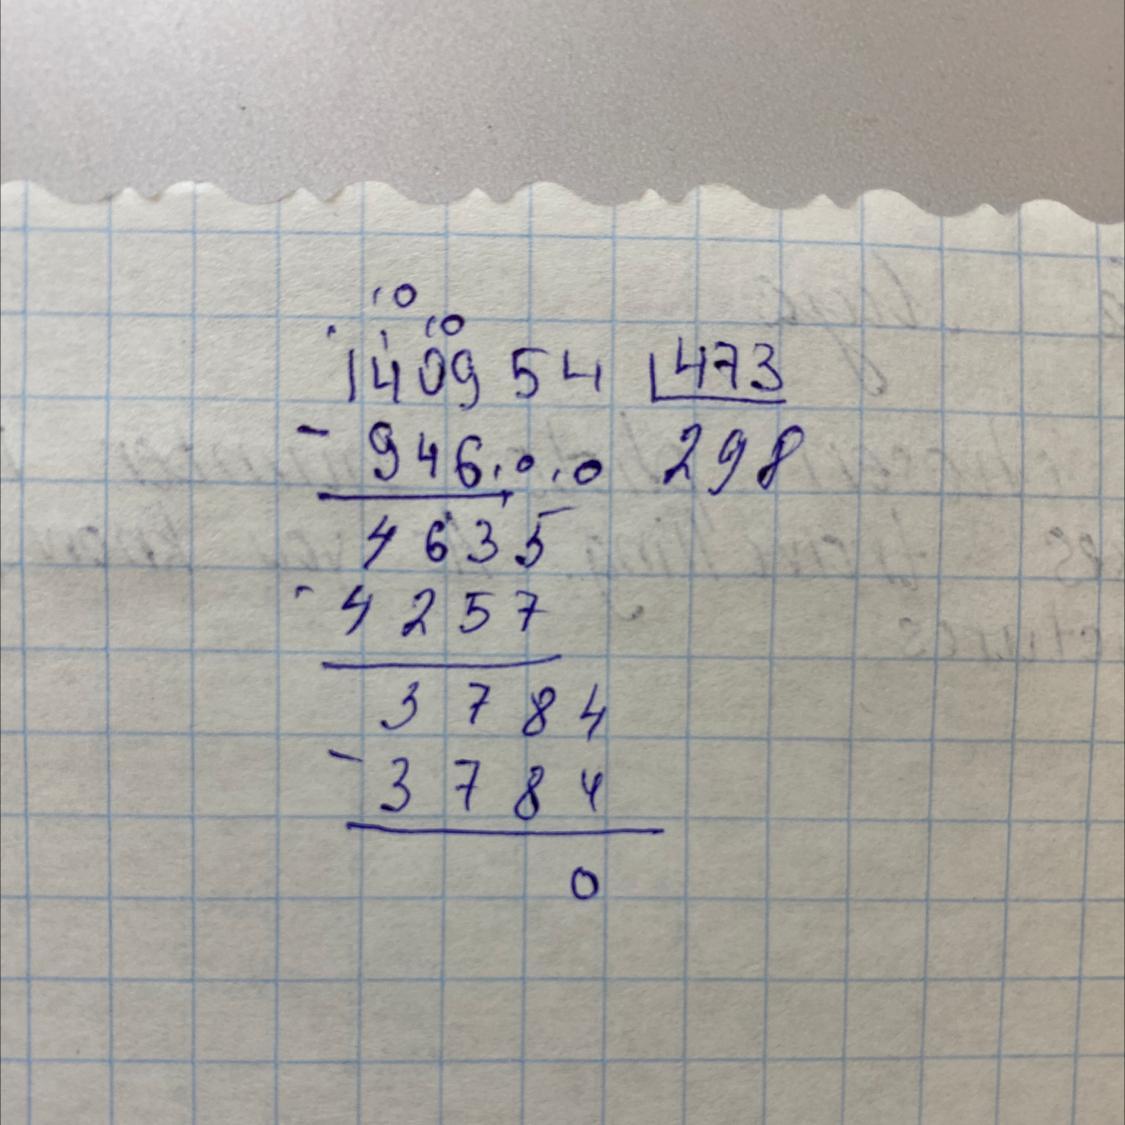 10
10
140954 473
- 946 298
4635
- 4257
3784
- 3784
0